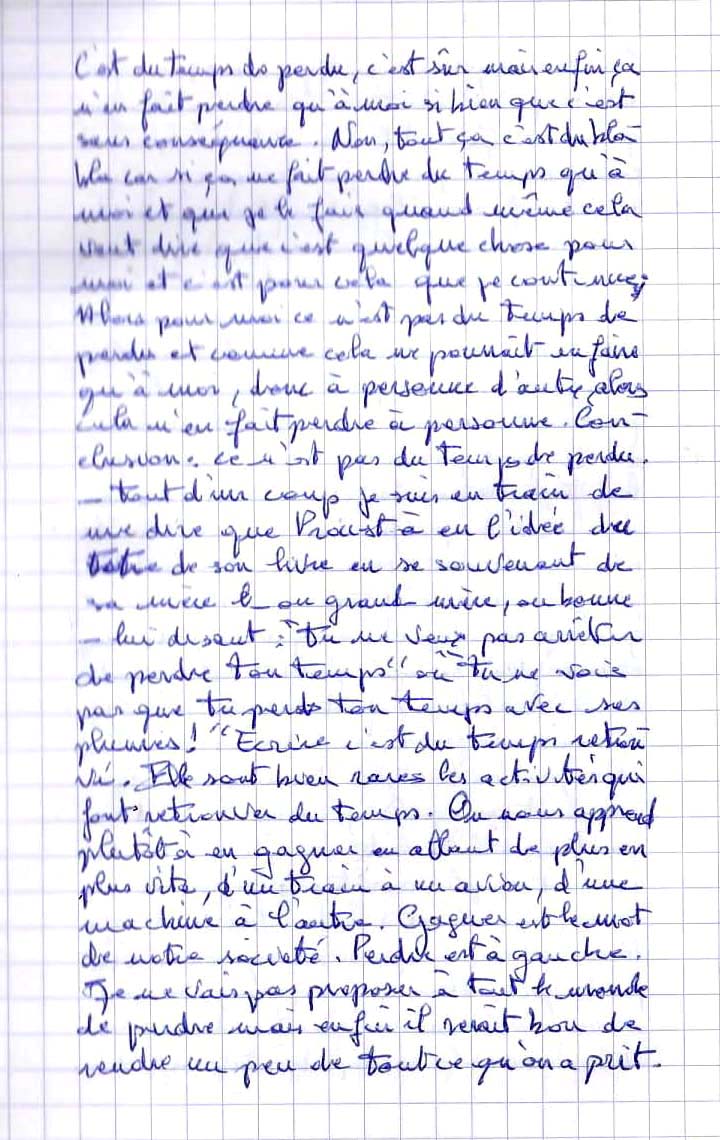 C'est du temps de perdu, c'est sûr mais enfin ça
n'en fait perdre qu'à moi si bien que c'est
sans conséquence. Non, tout ça c'est du bla-
bla car si ça ne fait perdre du temps qu'à
moi et que je le fais quand même cela
veut dire que c'est quelque chose pour
moi et c'est pour cela que je continue,
Alors pour moi ce n'est pas du temps de
perdu et comme cela ne pourrait en faire
qu'à moi, donc à personne d'autre, alors
cela n'en fait perdre à personne. Con-
clusion. ce n'est pas du temps de perdu.
— tout d'un coup je suis en train de
me dire que Proust à eu l'idée du
titre de son livre en se souvenant de
sa mère ou grand mère, ou bonne
— lui disant : "tu ne veux pas arrêter
de perdre ton temps" ou "tu ne vois
pas que tu perds ton temps avec ses
pleures! " Ecrire c'est du temps retrou
vé. Elle sont bien rares les activités qui
font retrouver du temps. On nous apprend
plutôt à en gagner en allant de plus en
plus vite, d'un train à un avion, d'une
machine à l'autre. Gagner est le mot
de notre société. Perdre est à gauche.
Je ne vais pas proposer à tout le monde
de perdre mais enfin il serait bon de
rendre un peu de tout ce qu'on a prit.